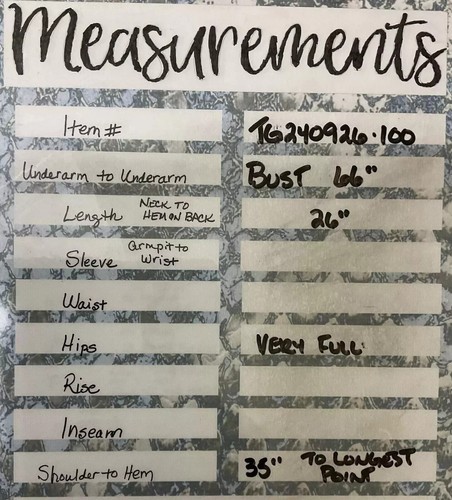 Measurements
Item # TG240926·100
Underarm to Underarm BUST 66"
Length NECK TO HEM ON BACK 26"
Sleeve Armpit to Wrist
Waist
Hips VERY FULL
Rise
Inseam
Shoulder to Hem 35" TO LONGEST POINT